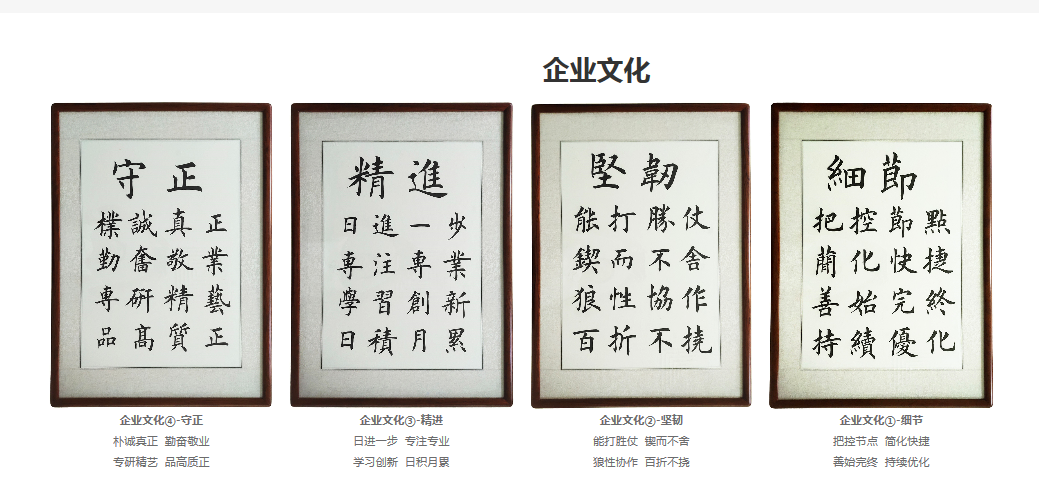 企业文化
守正
樸誠真正
勤奮敬業
専研精藝
品高質正
企业文化④-守正
朴诚真正 勤奋敬业
专研精艺 品高质正
精進
日進一步
専注専業
學習創新
日積月累
企业文化③-精进
日进一步 专注专业
学习创新 日积月累
堅韌
能打勝仗
鍥而不舍
狼性協作
百折不撓
企业文化②-坚韧
能打胜仗 锲而不舍
狼性协作 百折不挠
細節
把控節點
蕳化快捷
善始完終
持續優化
企业文化①-细节
把控节点 简化快捷
善始完终 持续优化